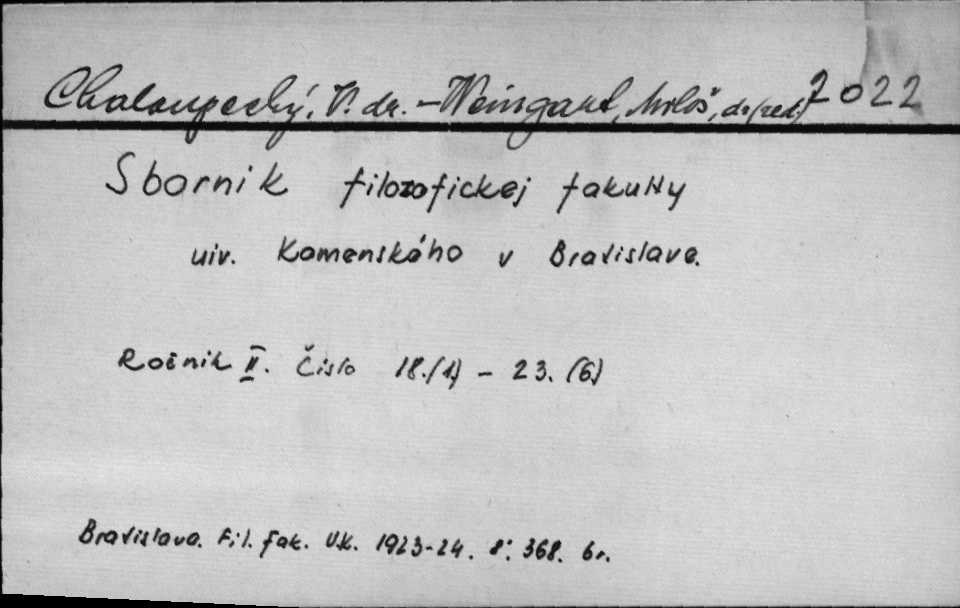 Chaloupecký, V. dr. – Weingart, Miloš, dr. (red.) 7022
Sborník filozofickej fakulty
uiv. Komenského v Bratislave.
Ročník II. Číslo 18.(1) – 23. (6)
Bratislava. Fil. fak. U.K. 1923-24. 8°. 368. 6r.